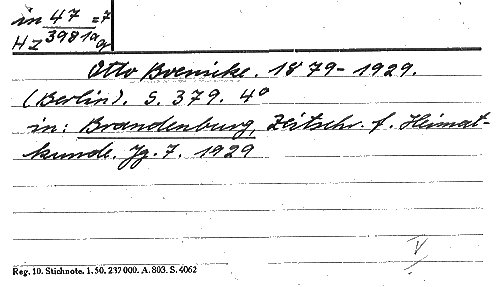 in 47 =7
HZ 3981a g
Otto Boenicke. 1879-1929.
(Berlin). S. 379. 4°
in: Brandenburg, Zeitschr. f. Heimat-
kunde. Jg. 7. 1929
V
Reg. 10. Stichnote. 1. 50. 237 000. A. 803. S. 4062